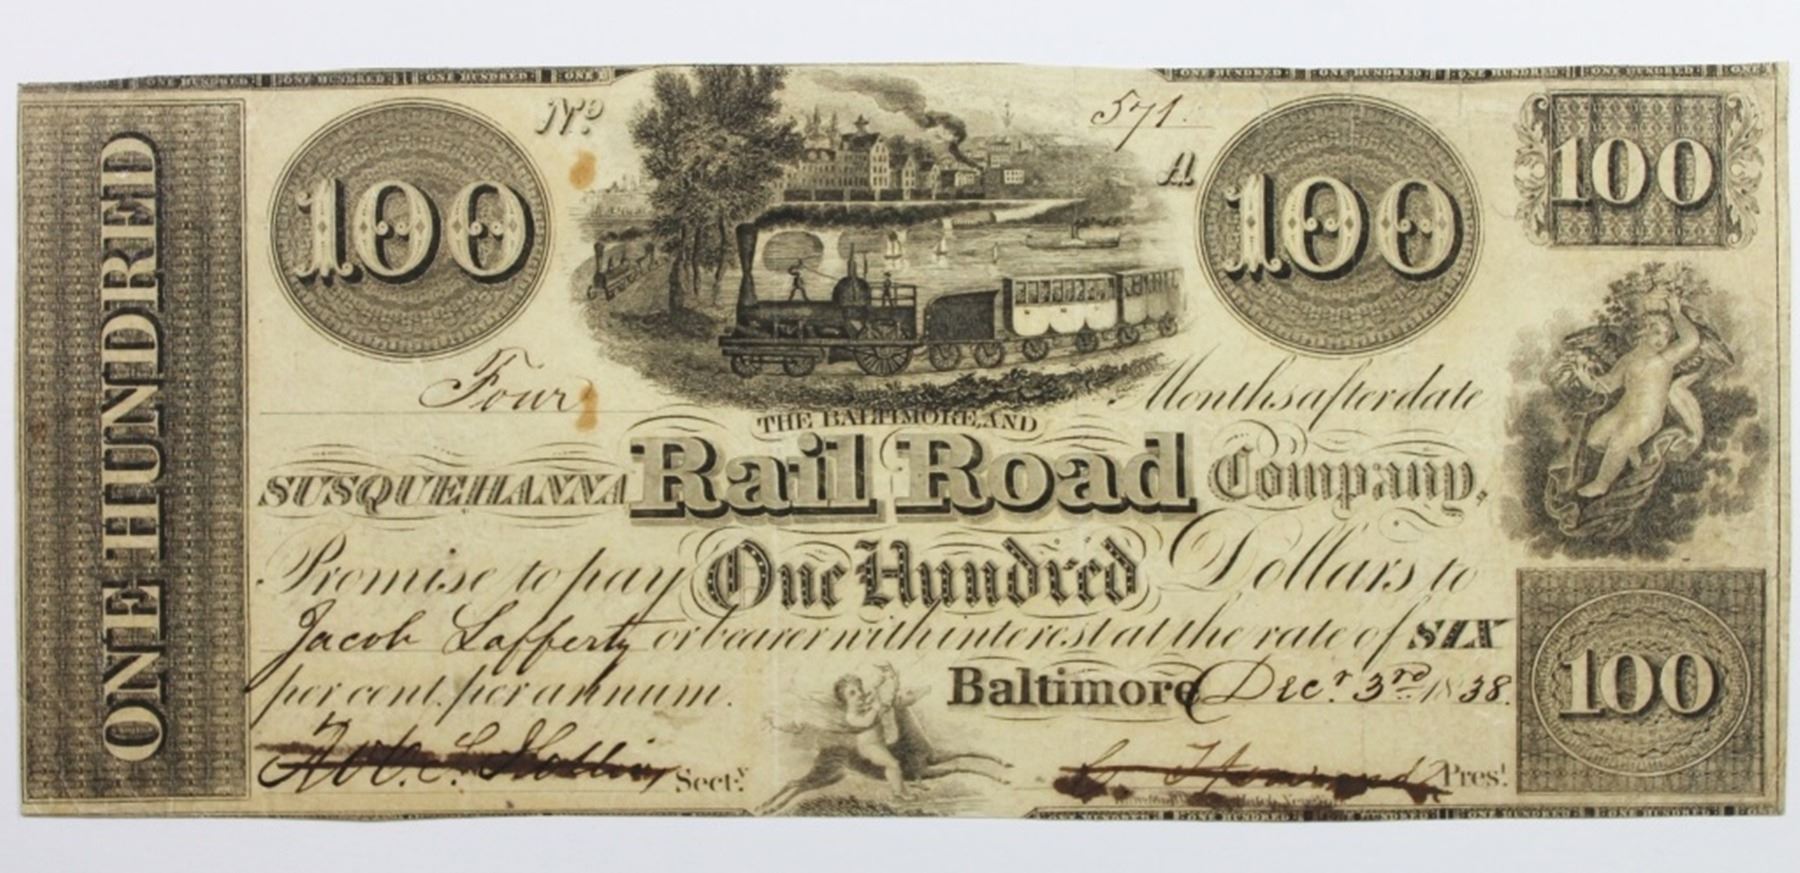 ONE HUNDRED ONE HUNDRED ONE HUNDRED ONE
ONE HUNDRED ONE HUNDRED ONE HUNDRED ONE HUNDRED ONE
ONE HUNDRED
No. 571.
A
100
100
100
Four Months after date
THE BALTIMORE, AND
SUSQUEHANNA Rail Road Company,
Promise to pay One Hundred Dollars to
Jacob Lafferty or bearer with interest at the rate of SIX
per cent. per annum. Baltimore Decr. 3rd 1838.
Secty. Prest.
100
ONE HUNDRED ONE HUNDRED ONE HUNDRED